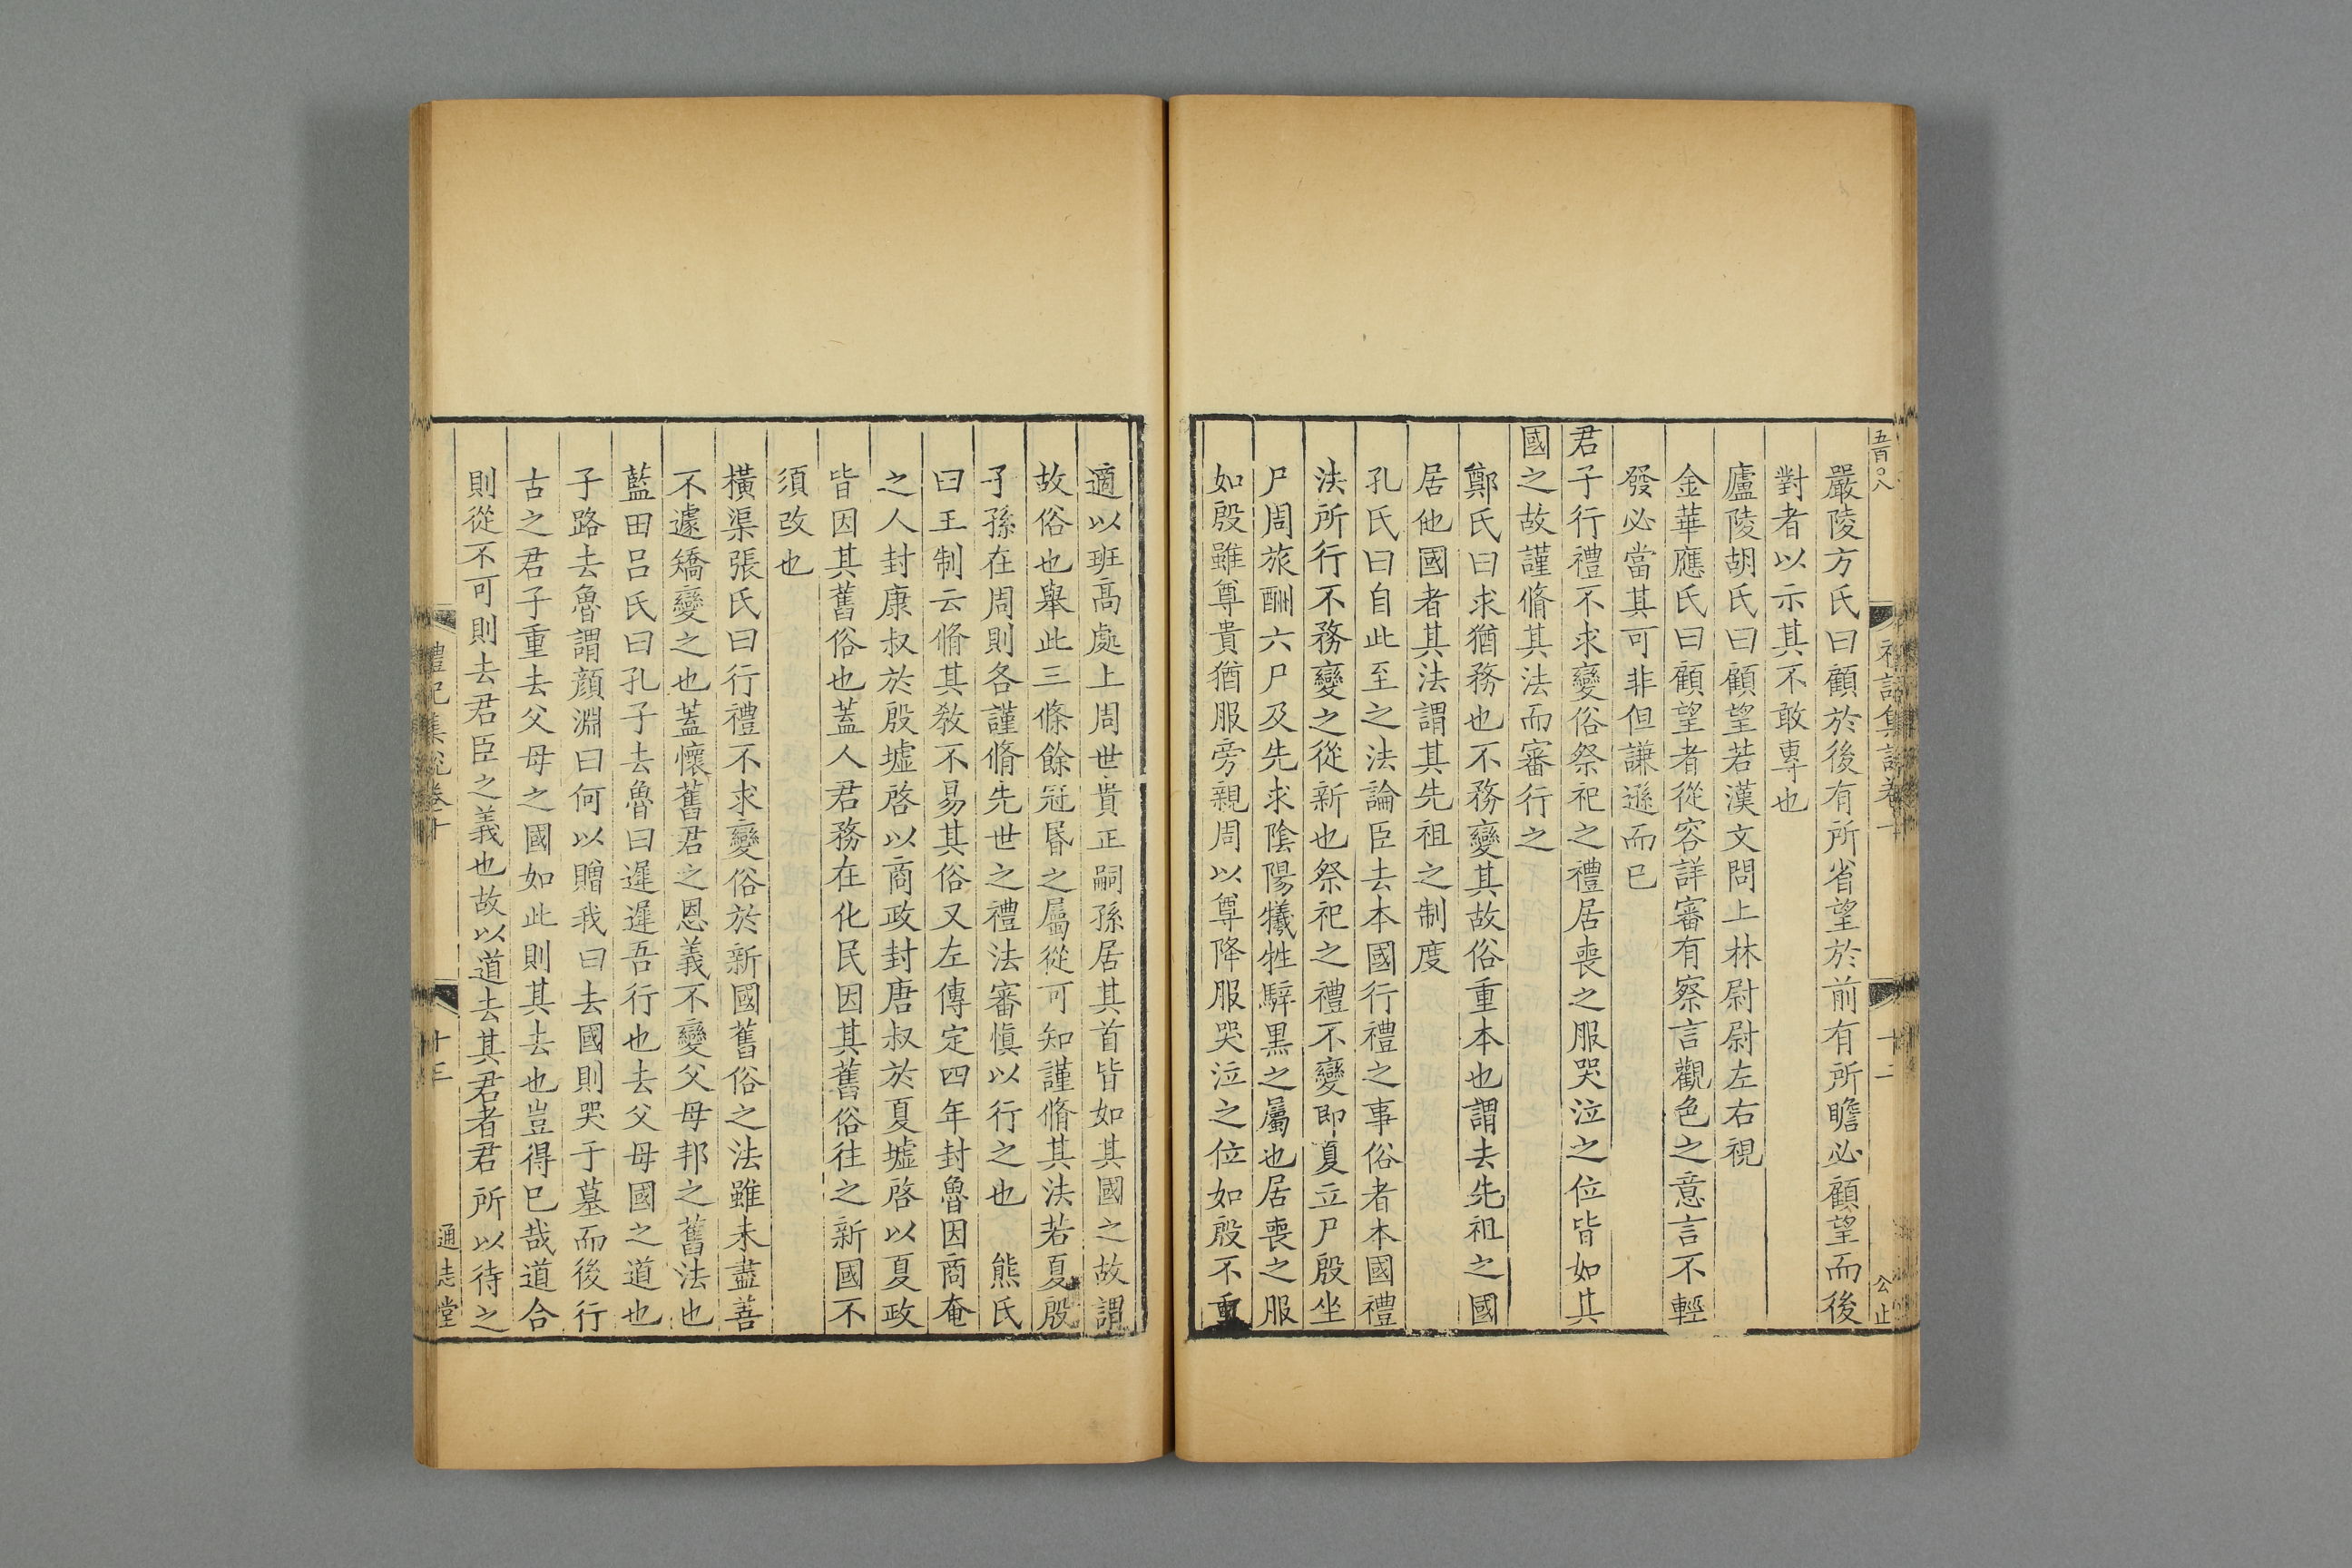 五百〇八
十二
公止
嚴陵方氏曰顧於後有所省望於前有所瞻必顧望而後
對者以示其不敢專也
廬陵胡氏曰顧望若漢文問上林尉尉左右視
金華應氏曰顧望者從容詳審有察言觀色之意言不輕
發必當其可非但謙遜而已
君子行禮不求變俗祭祀之禮居喪之服哭泣之位皆如其
國之故謹脩其法而審行之
鄭氏曰求猶務也不務變其故俗重本也謂去先祖之國
居他國者其法謂其先祖之制度
孔氏曰自此至之法論臣去本國行禮之事俗者本國禮
法所行不務變之從新也祭祀之禮不變即夏立尸殷坐
尸周旅酬六尸及先求陰陽犧牲騂黑之屬也居喪之服
如殷雖尊貴猶服旁親周以尊降服哭泣之位如殷不重
適以班高處上周世貴正嗣孫居其首皆如其國之故謂
故俗也舉此三條餘冠昏之屬從可知謹脩其法若夏殷
子孫在周則各謹脩先世之禮法審慎以行之也　熊氏
曰王制云脩其教不易其俗又左傳定四年封魯因商奄
之人封康叔於殷墟啓以商政封唐叔於夏墟啓以夏政
皆因其舊俗也蓋人君務在化民因其舊俗往之新國不
須改也
橫渠張氏曰行禮不求變俗於新國舊俗之法雖未盡善
不遽矯變之也蓋懷舊君之恩義不變父母邦之舊法也
藍田呂氏曰孔子去魯曰遲遲吾行也去父母國之道也
子路去魯謂顔淵曰何以贈我曰去國則哭于墓而後行
古之君子重去父母之國如此則其去也豈得已哉道合
則從不可則去君臣之義也故以道去其君者君所以待之
禮記集說卷十
十三
通志堂